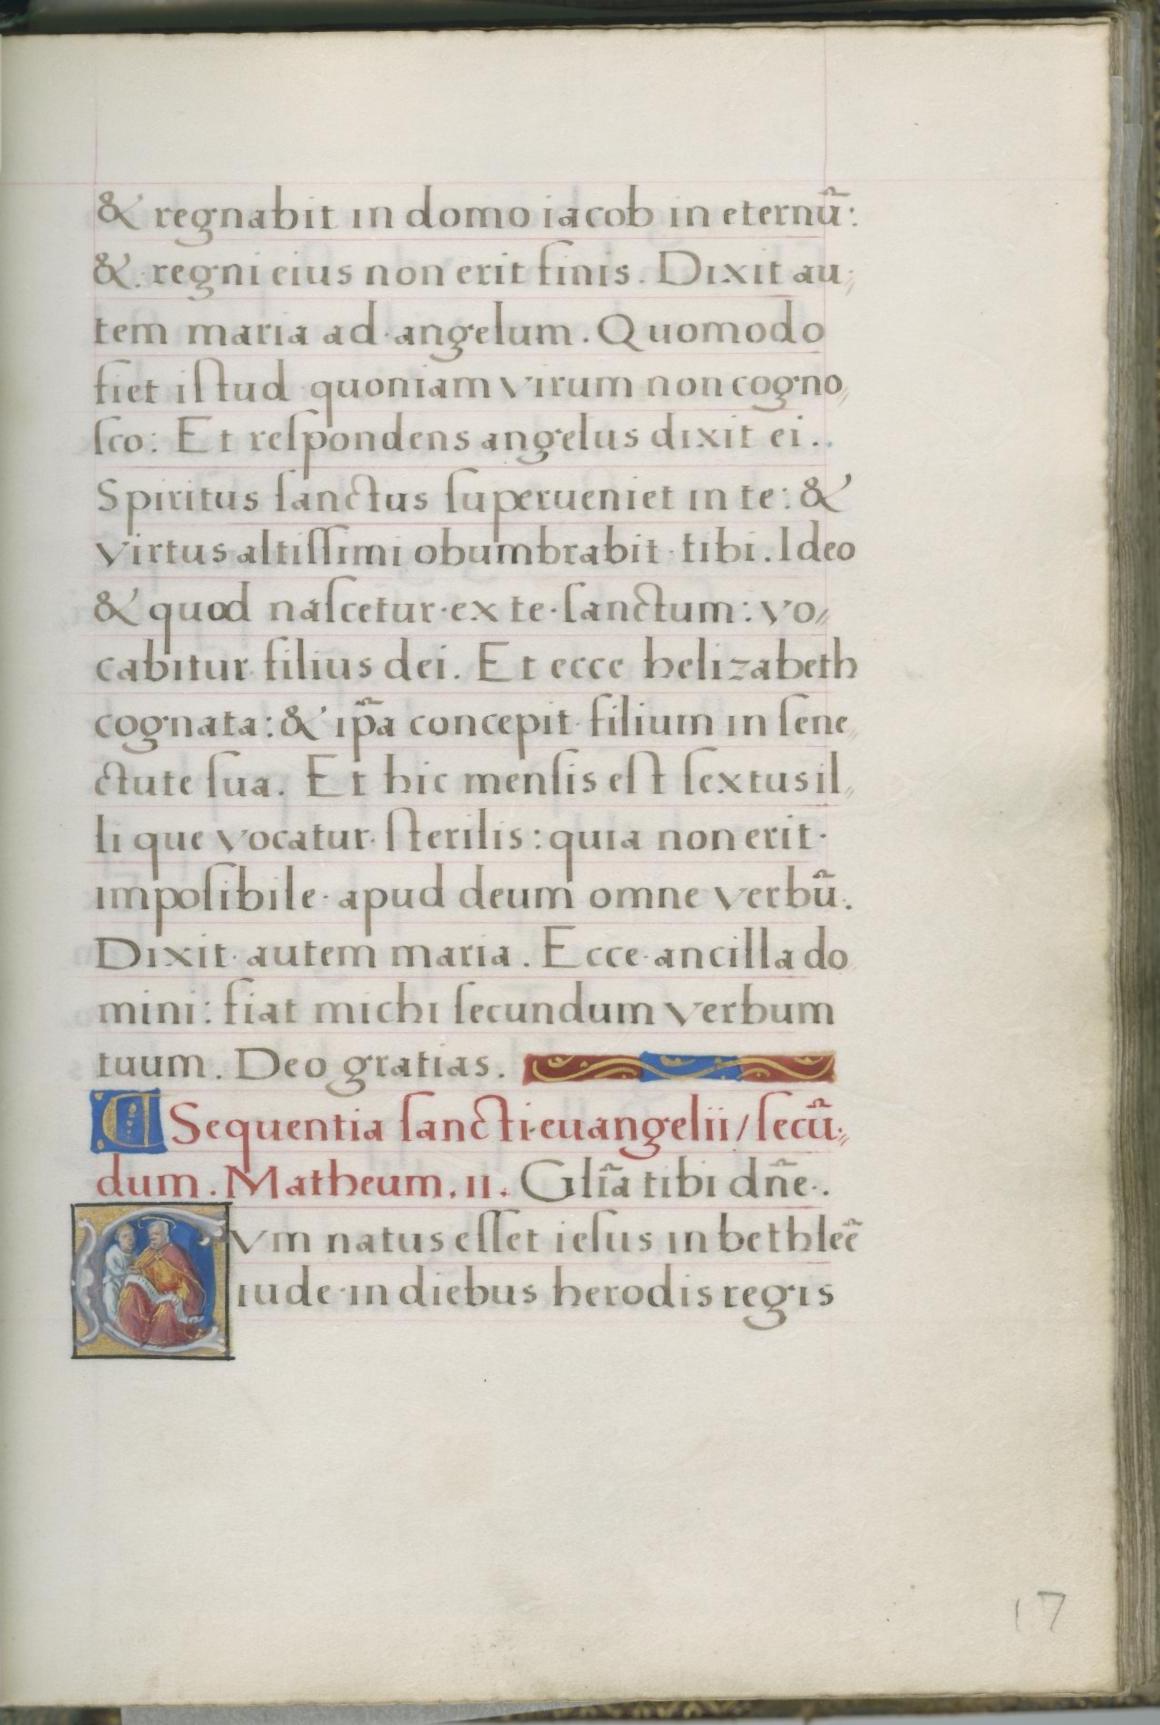 & regnabit in domo iacob in eternũ:
&. regni eius non erit finis. Dixit au,,
tem maria ad angelum. Quomodo
fiet iſtud quoniam virum non cogno,,
ſco: Et reſpondens angelus dixit ei..
Spiritus ſanctus ſuperueniet in te: &
virtus altiſſimi obumbrabit tibi. Ideo
& quod naſcetur·ex te·ſanctum: vo,,
cabitur filius dei. Et ecce helizabeth
cognata: & ip̃a concepit filium in ſene,,
ctute ſua. Et hic menſis eſt ſextus il,,
li que vocatur ſterilis: quia non erit·
impoſibile·apud deum omne verbũ.
Dixit autem maria. Ecce·ancilla do
mini: fiat michi ſecundum verbum
tuum. Deo gratias.
C Sequentia ſancti·euangelii/ſecũ,,
dum. Matheum. II. Glĩa tibi dñe.
Cvm natus eſſet ieſus in bethleẽ
iude·in diebus herodis regis
17